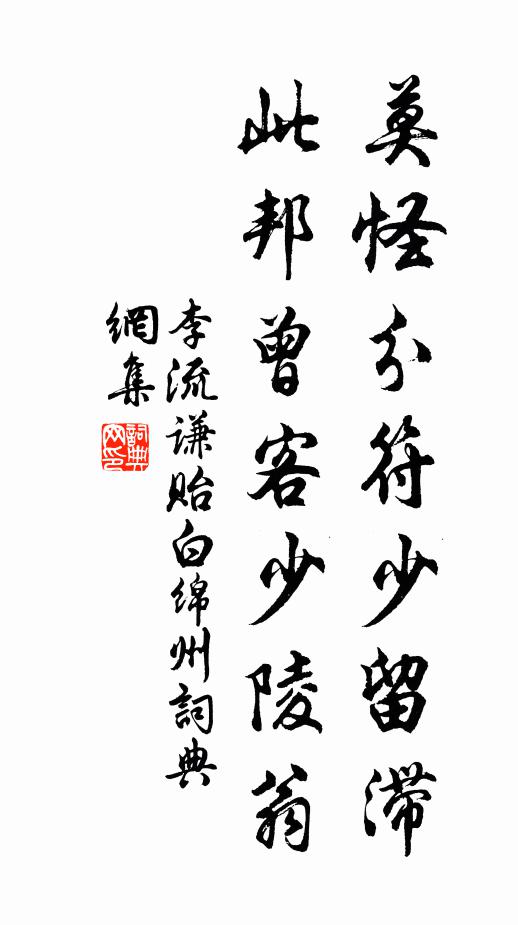 莫怪分符少留滞
此邦曾客少陵翁
李流謙貽白綿州詞典
網集
詞典網印